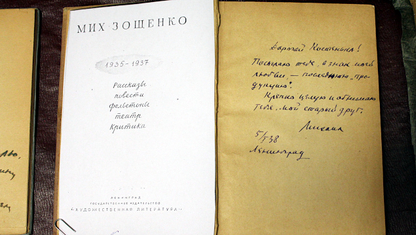 МИХ ЗОЩЕНКО
1935-1937
Рассказы
повести
фельетоны
театр
критика
ЛЕНИНГРАД
ГОСУДАРСТВЕННОЕ ИЗДАТЕЛЬСТВО
«ХУДОЖЕСТВЕННАЯ ЛИТЕРАТУРА»
Дорогой
Посылаю тебе, в знак моей
любви —
дукцию.
Крепко целую и обнимаю
тебя, мой старый друг.
Михаил
5/V 38
Ленинград